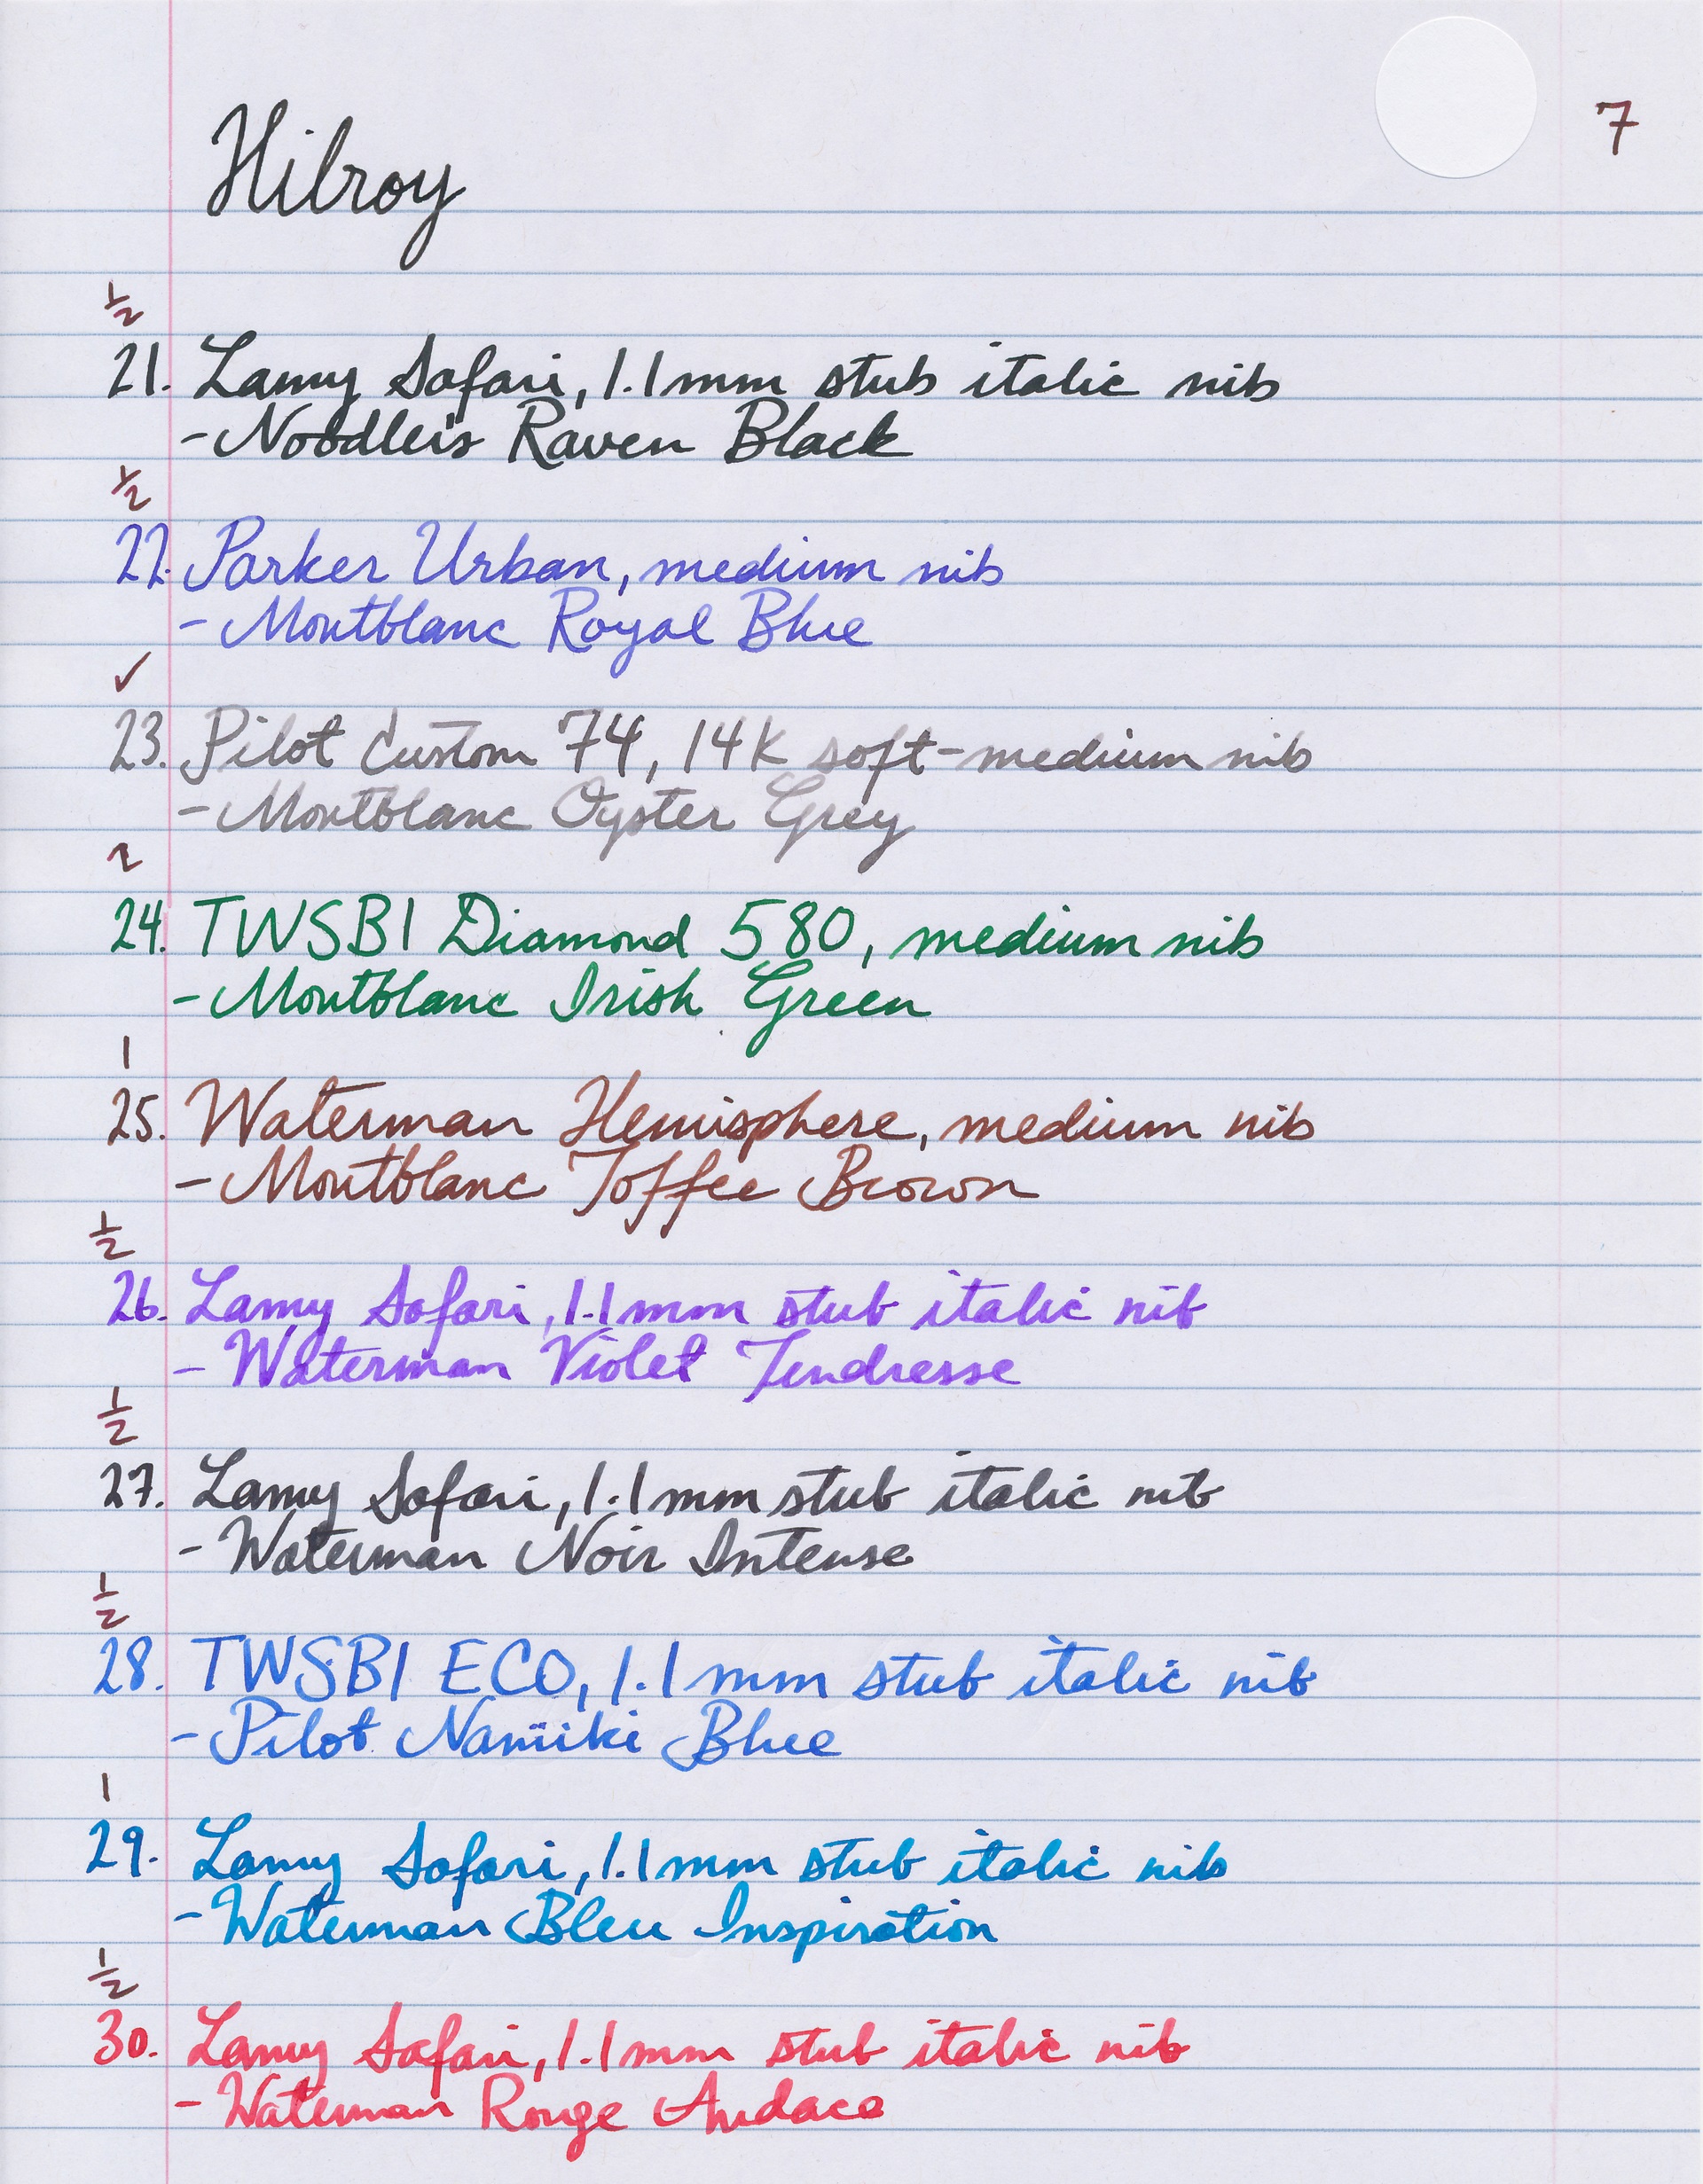 Hilroy
7
½
21. Lamy Safari, 1.1mm stub italic nib
- Noodler's Raven Black
½
22. Parker Urban, medium nib
- Montblanc Royal Blue
✓
23. Pilot Custom 74, 14K soft-medium nib
- Montblanc Oyster Grey
2
24. TWSBI Diamond 580, medium nib
- Montblanc Irish Green
1
25. Waterman Hemisphere, medium nib
- Montblanc Toffee Brown
½
26. Lamy Safari, 1.1mm stub italic nib
- Waterman Violet Tendresse
½
27. Lamy Safari, 1.1mm stub italic nib
- Waterman Noir Intense
½
28. TWSBI ECO, 1.1mm stub italic nib
- Pilot Namiki Blue
1
29. Lamy Safari, 1.1mm stub italic nib
- Waterman Bleu Inspiration
½
30. Lamy Safari, 1.1mm stub italic nib
- Waterman Rouge Audace